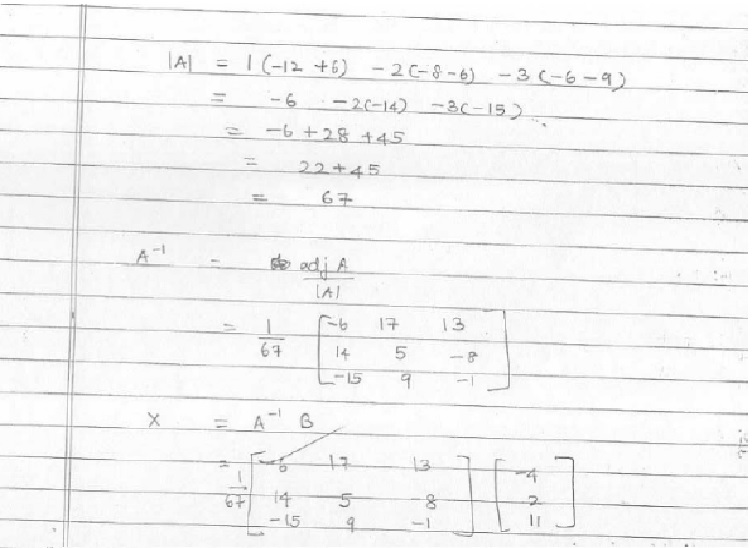 |A| = 1(-12 +6) -2(-8-6) -3(-6-9)
= -6 -2(-14) -3(-15)
= -6 +28 +45
= 22+45
= 67
A⁻¹ - adj A
|A|
= 1 [-6 17 13
67 14 5 -8
-15 9 -1]
X = A⁻¹ B
= 1 [-6 17 13] [-4
67 14 5 -8 2
-15 9 -1] 11]